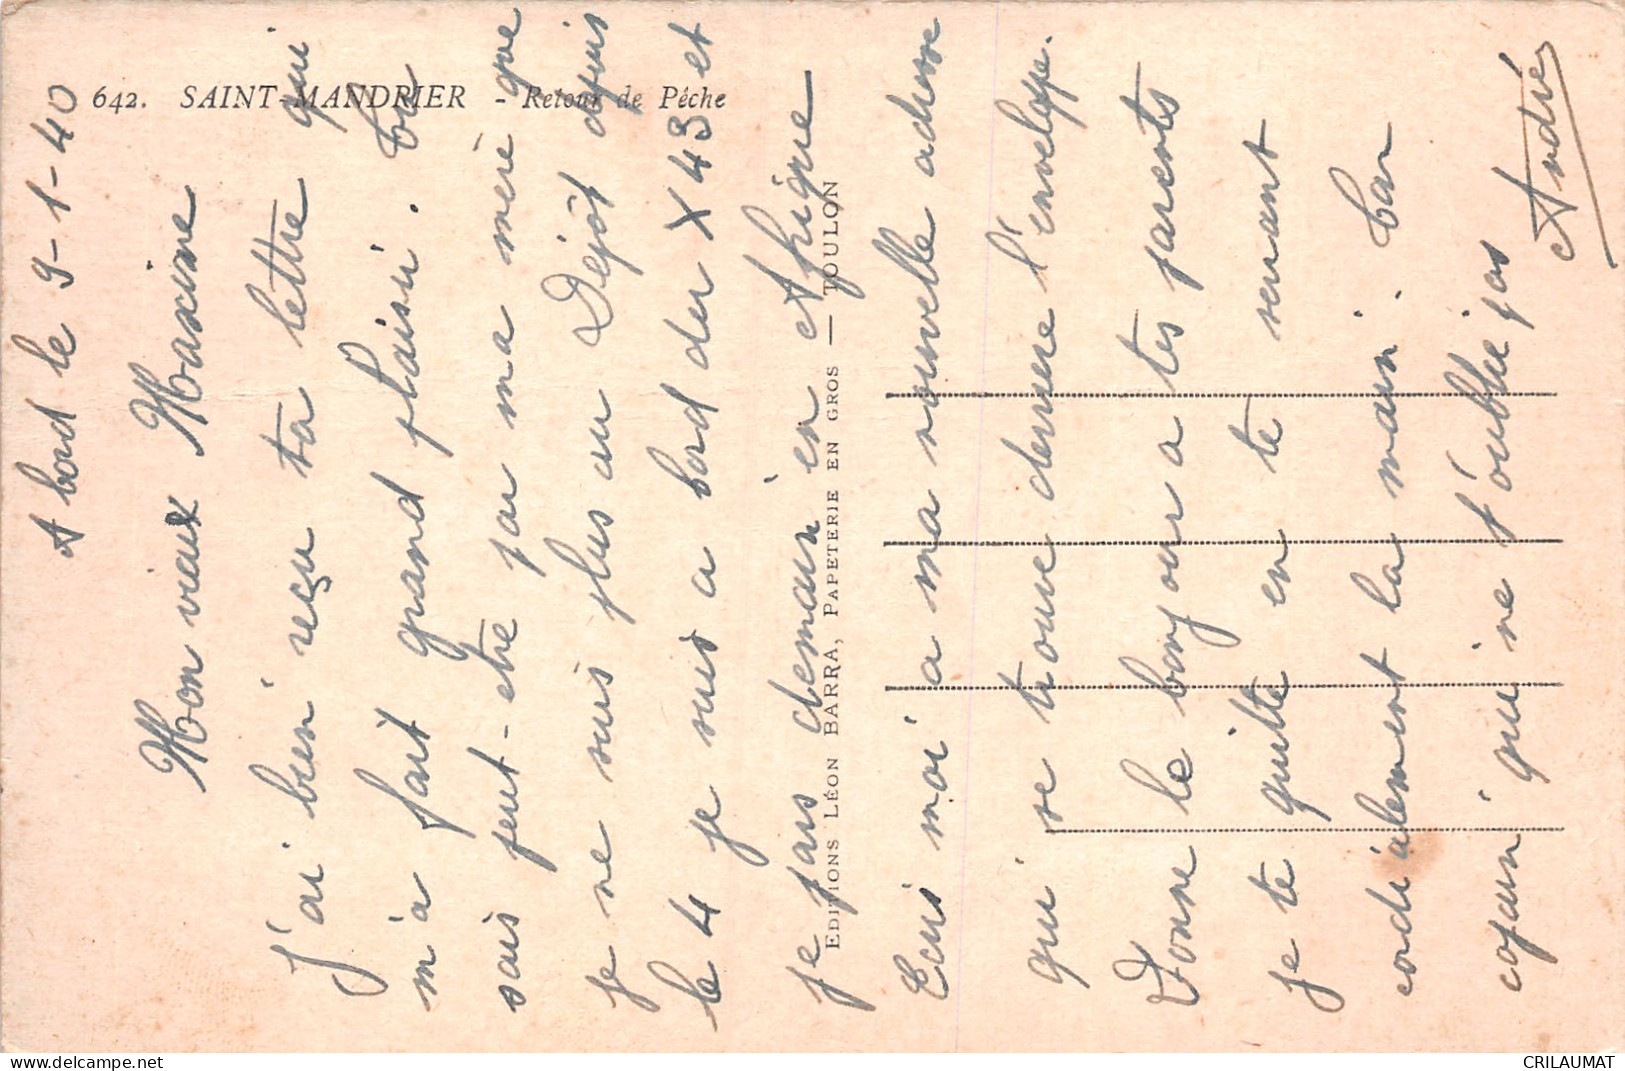 642. SAINT-MANDRIER - Retour de Pêche
A bord le 9-1-40
Mon vieux Maxime
J'ai bien reçu ta lettre qui
m'a fait grand plaisir. Tu
sais peut-etre par ma mère que
je ne suis plus au Dépôt depuis
le 4 je suis a bord du X 43 et
je pars demain en Afrique
Ecris moi a ma nouvelle adresse
qui se trouve derriere l'enveloppe.
Donne le bonjour a tes parents
je te quitte en te serrant
cordialement la main. Ton
copain qui ne t'oublie pas
André
EDITIONS LÉON BARRA, PAPETERIE EN GROS — TOULON
www.delcampe.net
CRILAUMAT